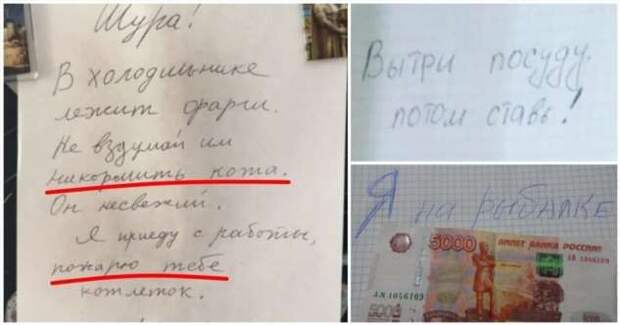 Шура!
В холодильнике
лежит фарш.
Не вздумай им
накормить кота.
Он несвежий.
Я приеду с работы,
пожарю тебе
котлеток.
Вытри посуду.
потом ставь!
Я НА РЫБАЛКЕ
5000
БИЛЕТ БАНКА РОССИИ